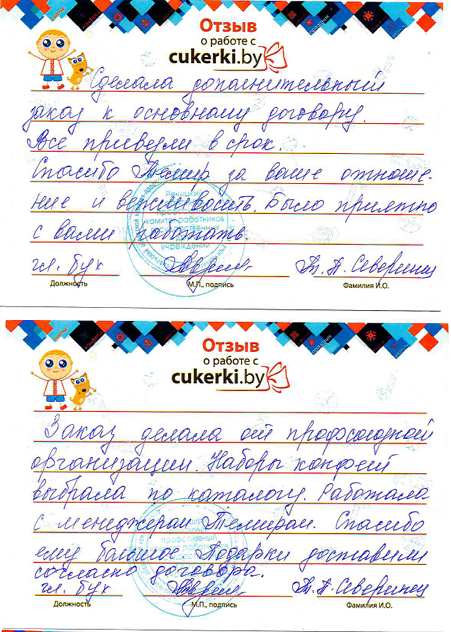 Отзыв
о работе с
cukerki.by
Сделала дополнительный
заказ к основному договору.
Все привезли в срок.
Спасибо Темир за ваше отноше-
ние и вежливость. Было приятно
с вами работать.
гл. бух Т. А. Северинец
Должность М.П., подпись Фамилия И.О.
Отзыв
о работе с
cukerki.by
Заказ делала от профсоюзной
организации. Наборы конфет
выбрала по каталогу. Работала
с менеджером Темиром. Спасибо
ему большое. Подарки доставили
согласно договора.
гл. бух Т. А. Северинец
Должность М.П., подпись Фамилия И.О.